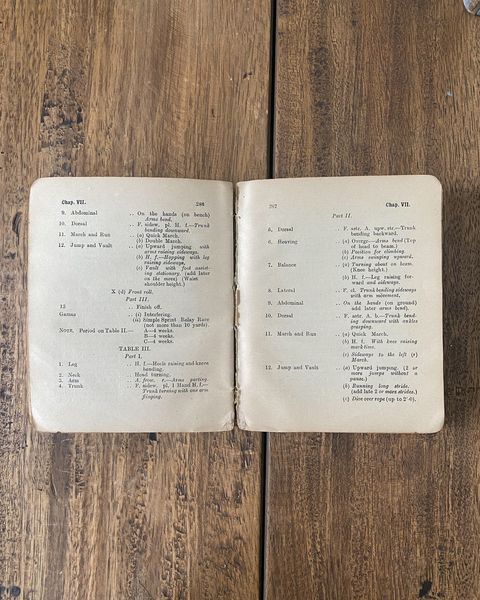 Chap. VII. 266
9. Abdominal .. On the hands (on bench)
Arms bend.
10. Dorsal .. F. sidew. pl. H. f.—Trunk
bending downward.
11. March and Run .. (a) Quick March.
(b) Double March.
12. Jump and Vault .. (a) Upward jumping with
arms raising sideways.
(b) H. f.—Hopping with leg
raising sideways.
(c) Vault with foot assist-
ing stationary. (add later
on the move) (Waist
shoulder height.)
X (d) Front roll.
Part III.
13 .. Finish off.
Games .. (i) Interfering.
(ii) Simple Sprint Relay Race
(not more than 10 yards).
NOTE. Period on Table II.— A—4 weeks.
B—4 weeks.
C—4 weeks.
TABLE III.
Part I.
1. Leg .. H. f.—Heels raising and knees
bending.
2. Neck .. Head turning.
3. Arm .. A. frow. r.—Arms parting.
4. Trunk .. F. sidew. pl. 1 Hand H. f.—
Trunk turning with one arm
flinging.
267 Chap. VII.
Part II.
5. Dorsal .. F. astr. A. upw. str.—Trunk
bending backward.
6. Heaving .. (a) Overgr.—Arms bend (Top
of head to beam.)
(b) Position for climbing.
(c) Arms swinging upward.
7. Balance .. (a) Turning about on beam.
(Knee height.)
(b) H. f.—Leg raising for-
ward and sideways.
8. Lateral .. F. cl. Trunk bending sideways
with arm movement.
9. Abdominal .. On the hands (on ground)
add later arms bend).
10. Dorsal .. F. astr. A. b.—Trunk bend-
ing downward with ankles
grasping.
11. March and Run .. (a) Quick March.
(b) H. f. With knee raising
mark time.
(c) Sideways to the left (r)
March.
12. Jump and Vault .. (a) Upward jumping. (2 or
more jumps without a
pause.)
(b) Running long stride.
(add late 2 or more strides.)
(c) Dive over rope (up to 2'-0).